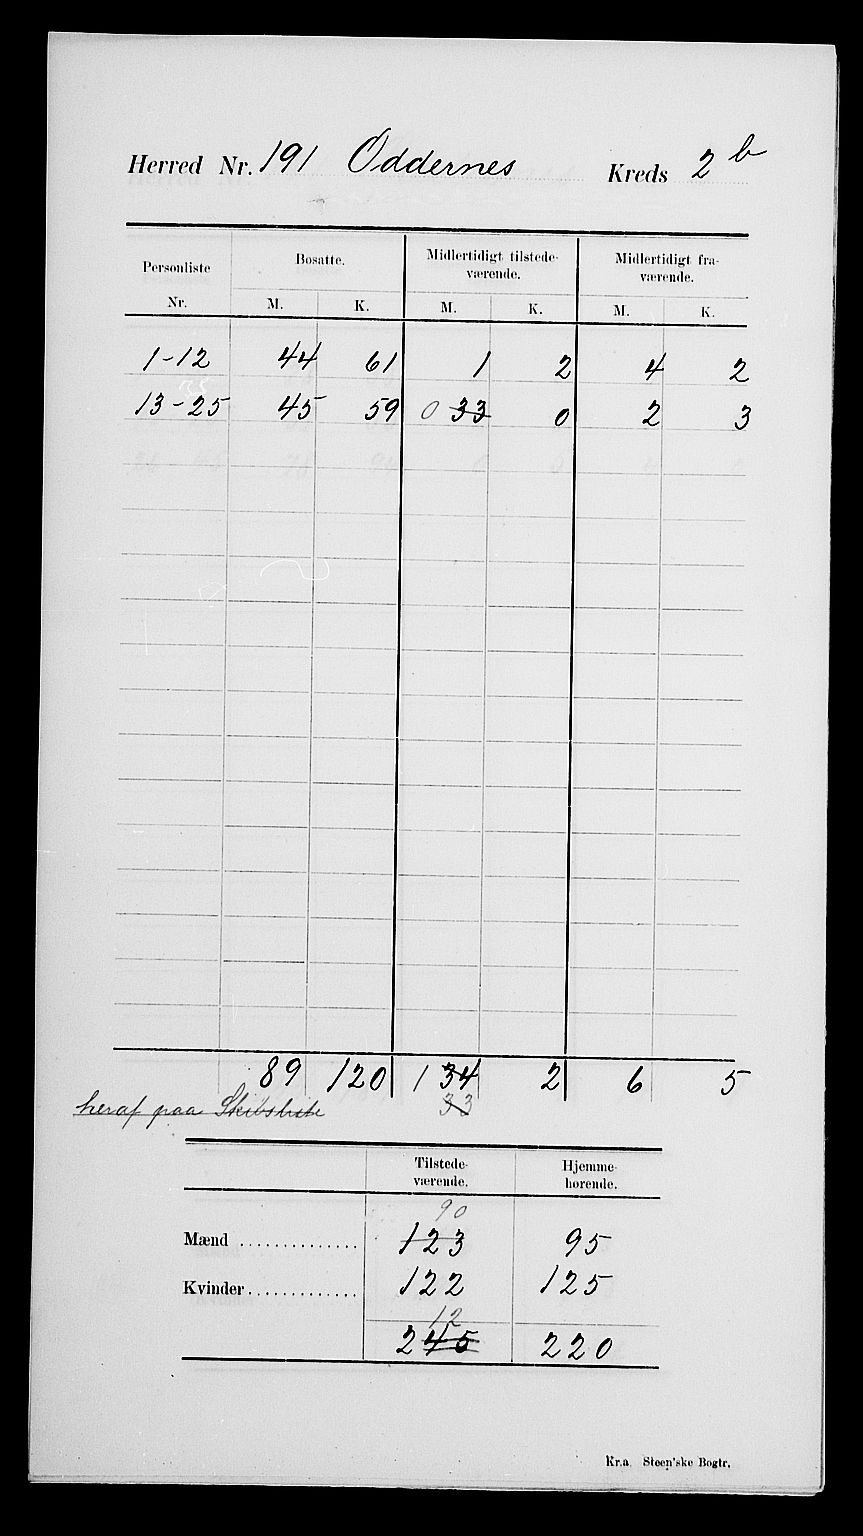 Herred Nr. 191 Oddernes Kreds 2 b
Personliste Nr. Bosatte. Midlertidigt tilstede-værende. Midlertidigt fra-værende.
M. K. M. K. M. K.
1-12 44 61 1 2 4 2
13-25 45 59 0 33 0 2 3
89 120 1 34 2 6 5
heraf paa Skibsliste 33
Tilstede-værende. Hjemme-hørende.
90
Mænd 123 95
Kvinder 122 125
12
245 220
Kr.a. Steen'ske Bogtr.